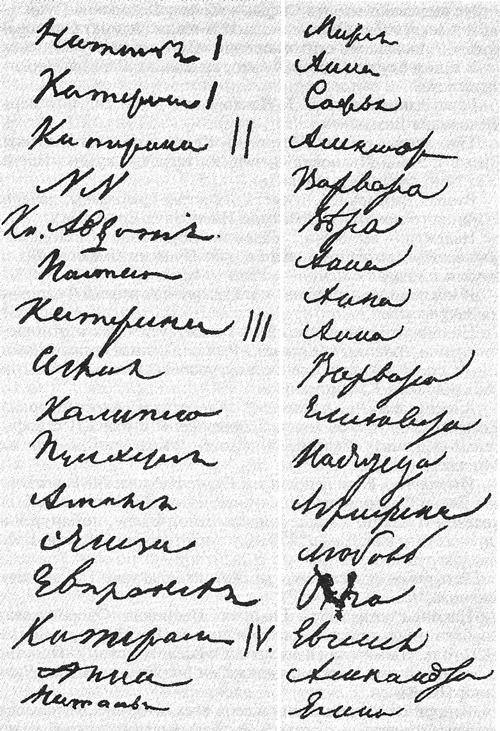 Наталья I
Катерина I
Катерина II
NN
Кн. Авдотия.
Настасья
Катерина III
Аглая
Калипсо
Пулхерия
Амалия
Элиза
Евпраксея
Катерина IV.
Анна
Наталья
Мария
Анна
Софья
Александра
Варвара
Вера
Анна
Анна
Анна
Варвара
Елизавета
Надежда
Аграфена
Любовь
Ольга
Евгения
Александра
Елена